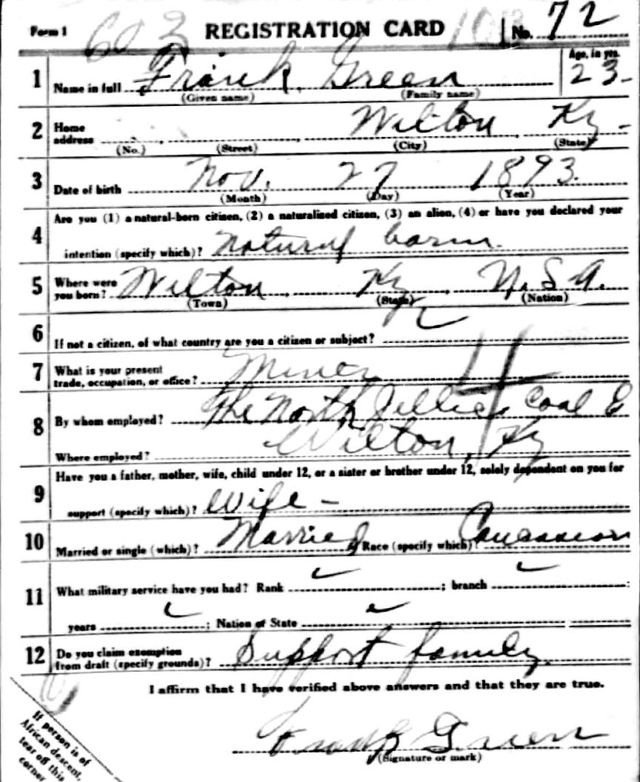 Form 1 603 REGISTRATION CARD No. 72
1 Name in full Frank Green Age, in yrs. 23
(Given name) (Family name)
2 Home address Wilton Ky-
(No.) (Street) (City) (State)
3 Date of birth Nov. 27 1893.
(Month) (Day) (Year)
4 Are you (1) a natural-born citizen, (2) a naturalized citizen, (3) an alien, (4) or have you declared your
intention (specify which)? natural born.
5 Where were you born? Wilton Ky U.S.A.
(Town) (State) (Nation)
6 If not a citizen, of what country are you a citizen or subject?
7 What is your present trade, occupation, or office? Miner
8 By whom employed? The North Jellico Coal
Where employed? Wilton, Ky
9 Have you a father, mother, wife, child under 12, or a sister or brother under 12, solely dependent on you for
support (specify which)? Wife -
10 Married or single (which)? Married Race (specify which)? Caucasian
11 What military service have you had? Rank ; branch ;
years ; Nation or State
12 Do you claim exemption from draft (specify grounds)? Support family.
I affirm that I have verified above answers and that they are true.
Frank Green
(Signature or mark)
If person is of
African descent,
tear off this
corner